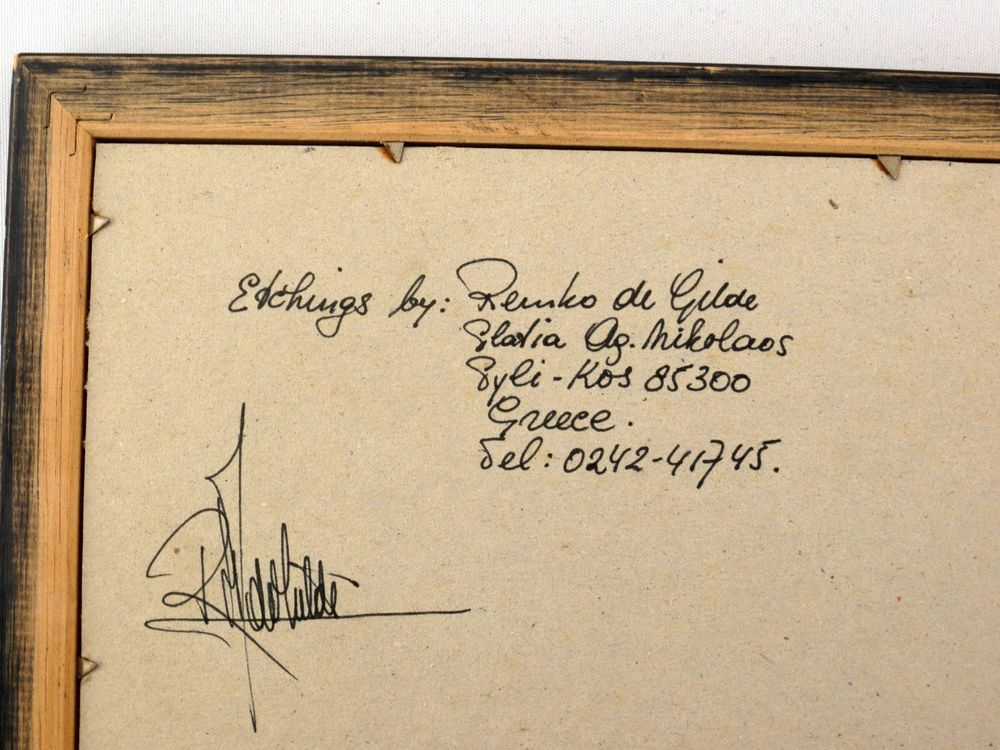 Etchings by: Remko de Gilde
Platia Ag. Nikolaos
Pyli - Kos 85300
Greece.
Tel: 0242-41745.